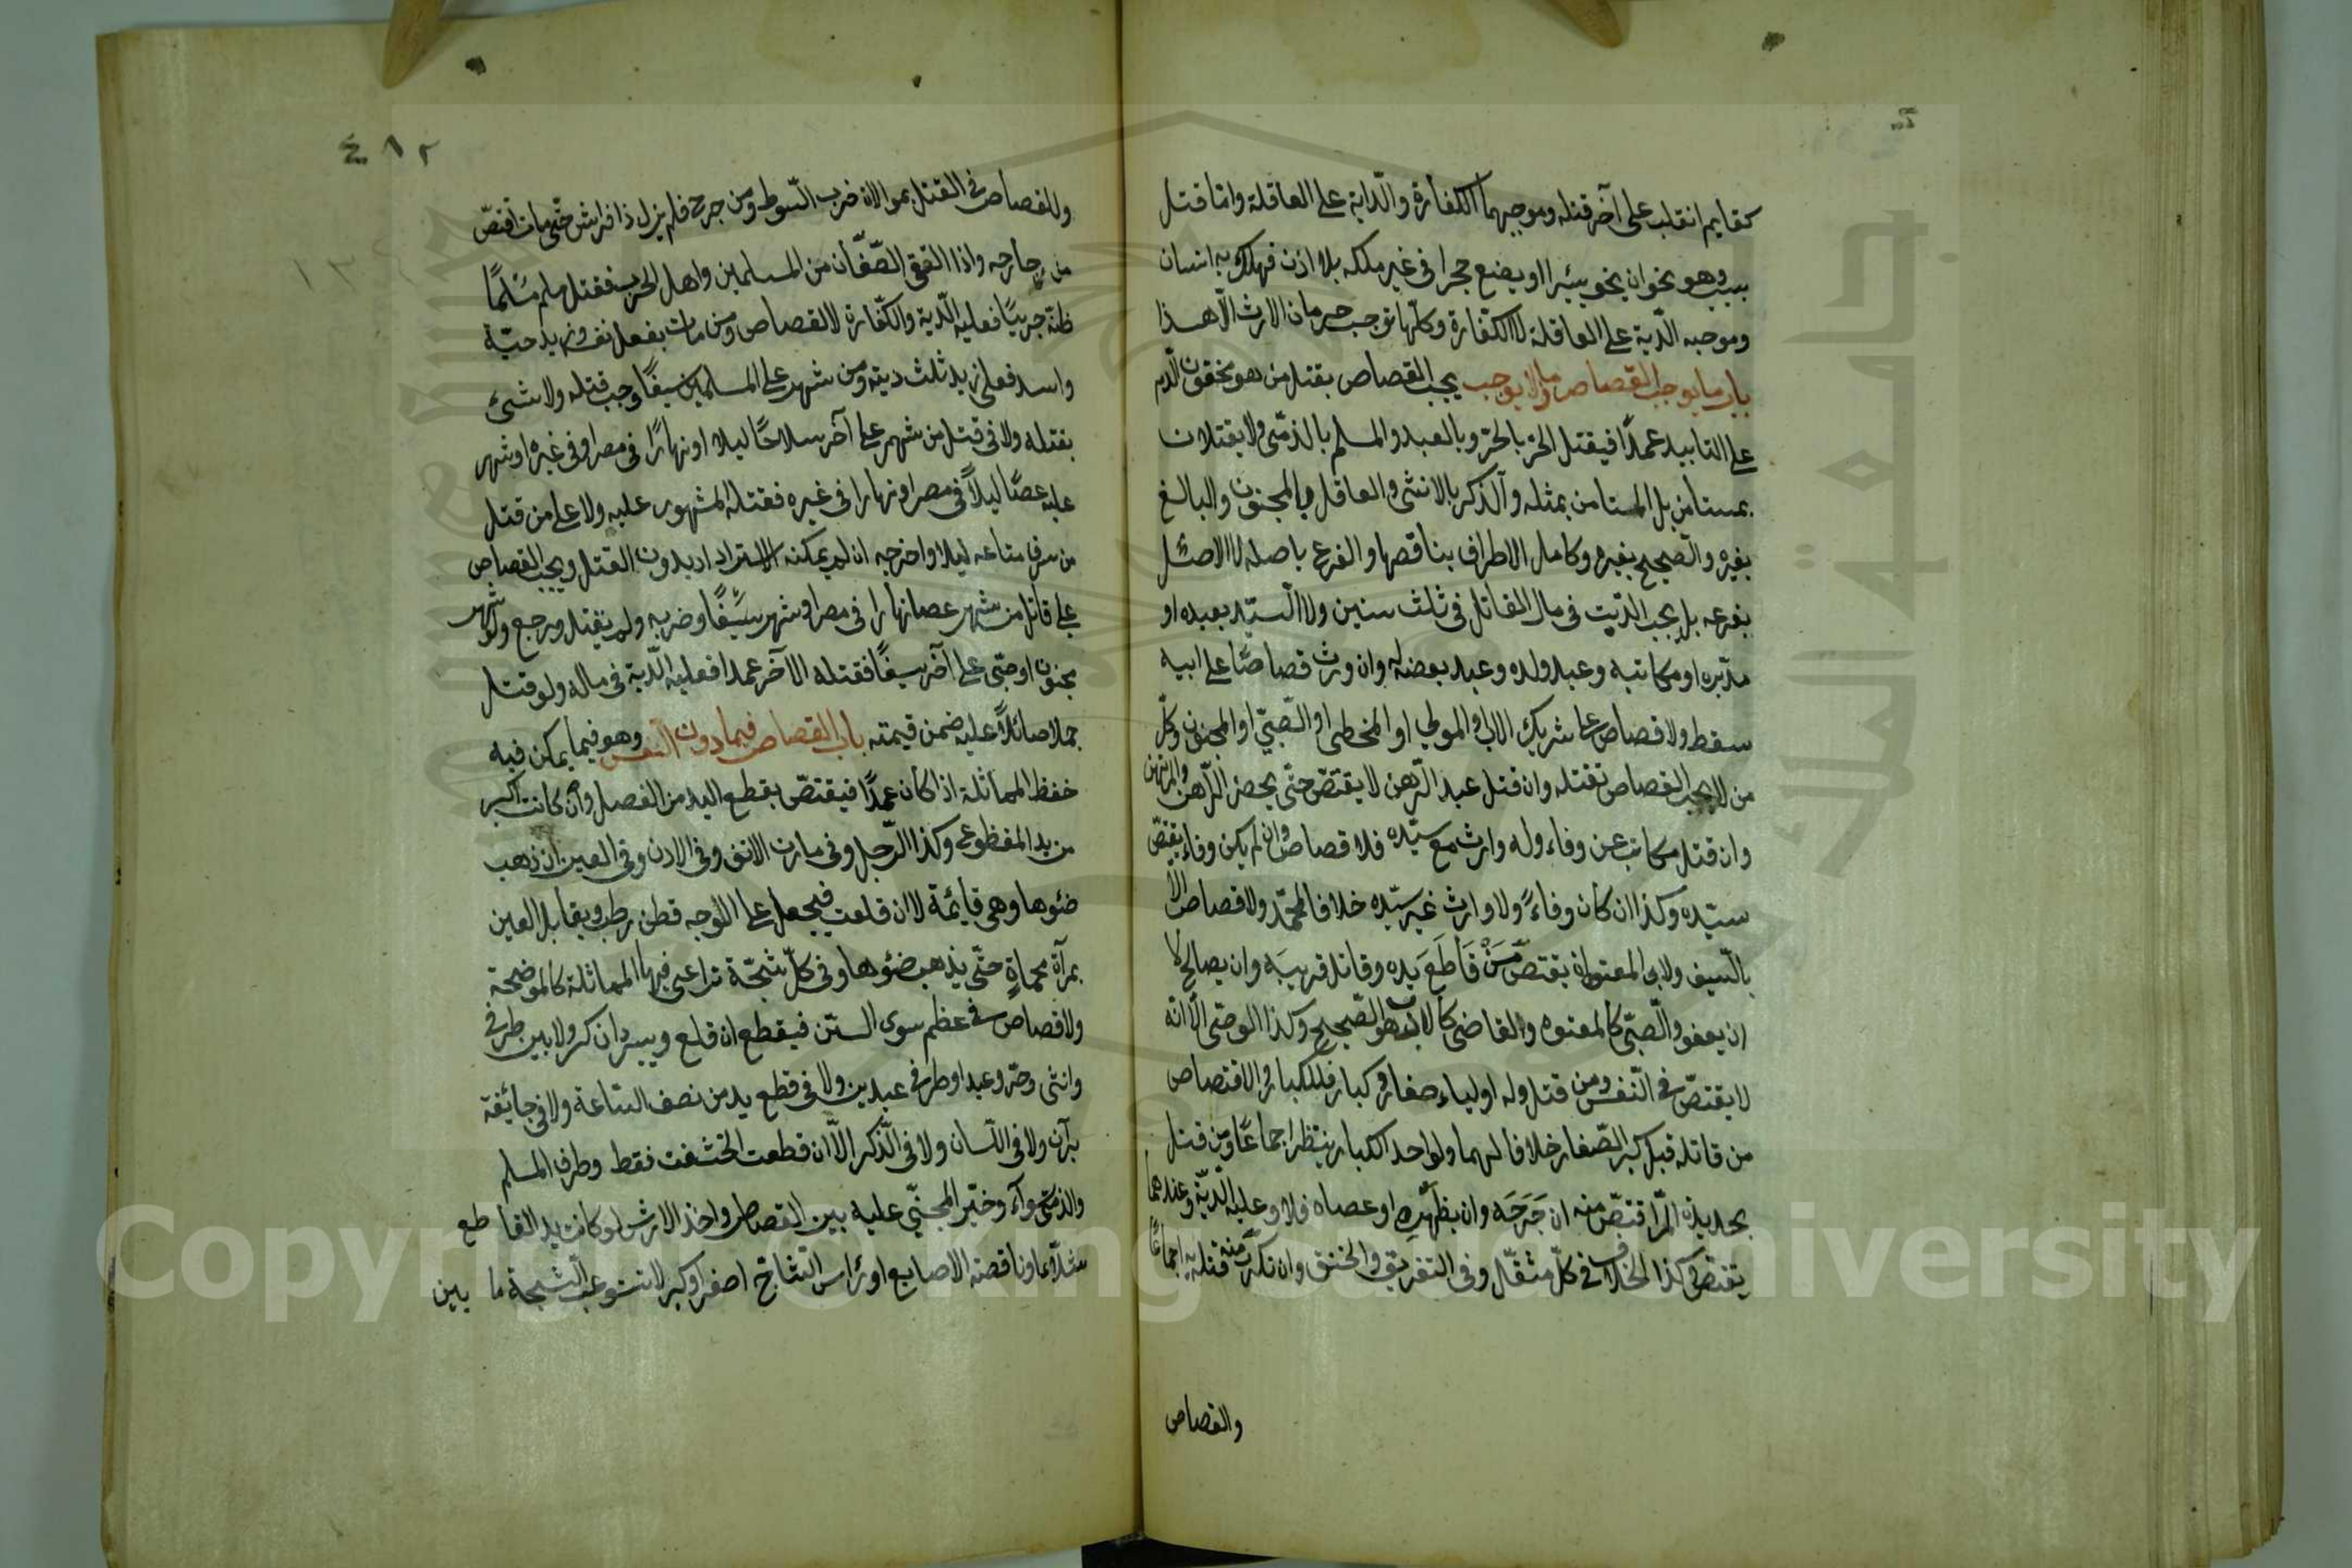 كنايم انقلب على آخر قتله وموجبهما الكفارة والدية على العاقلة واما قتل
بسبب وهو نحو ان يحفر بئيرا او يضع حجرا في غير ملكه بلا اذن فهلك به انسان
وموجبه الدية على العاقلة لا الكفارة وكلها توجب حرمان الارث الا هذا
باب ما يوجب القصاص وما لا يوجب يجب القصاص بقتل من هو محقون الدم
على التابيد عمدًا فيقتل الحر بالحر وبالعبد والمسلم بالذمى ولا يقتلان
بمستامن بل المستامن بمثله والذكر بالانثى والعاقل بالمجنون والبالغ
بغيره والصحيح بغيره وكامل الاطراف بناقصها والفرع باصله لا الاصل
بفرعه بل يجب الدية في مال القاتل في ثلث سنين ولا السيد بعبده او
مدبره او مكاتبه وعبد ولده وعبد بعضه له وان ورث قصاصًا على ابيه
سقط ولا قصاص على شريك الاب او المولى او المخطى او الصبي او المجنون وكل
من لا يجب القصاص بقتله وان قتل عبد الرهن لا يقتص حتى يحضر الراهن والمرتهن
وان قتل مكاتب عن وفاء وله وارث مع سيده فلا قصاص وان لم يكن وفاء يقتص
سيده وكذا ان كان وفاءً ولا وارث غير سيده خلافا لمحمد ولا قصاص الا
بالسيف ولابى المعتوه ان يقتص من قاطع يده وقاتل قريبه وان يصالح لا
ان يعفو والصبى كالمعتوه والقاضى كالاب هو الصحيح وكذا الوصى الا انه
لا يقتص في النفس ومن قتل وله اولياء صغار وكبار فللكبار الاقتصاص
من قاتله قبل كبر الصغار خلافا لهما ولو احد الكبار ينتظر اجماعًا ومن قتل
بحديدة المر اقتص منه ان جرحه وان بظهره او عصاه فلا وعليه الدية وعندهما
يقتص وكذا الخلاف في كل مثقل وفي التغريق والخنق وان تكرر منه قتل به اجماعًا
والقصاص
٤٨٢
وللقصاص في القتل بموالاة ضرب السوط ومن جرح فلم يزل ذا فراش حتى مات اقتص
من جارحه واذا التقى الصفان من المسلمين واهل الحرب فقتل مسلم مسلمًا
ظنه حربيًا فعليه الدية والكفارة لا القصاص ومن مات بفعل نفسه وزيد وحية
واسد فعلى زيد ثلث ديته ومن شهر على المسلمين سيفًا وجب قتله ولا شئ
بقتله ولا في قتل من شهر على آخر سلاحًا ليلا او نهارًا في مصر او في غيره او شهر
عليه عصًا ليلاً في مصر او نهارا في غيره فقتله المشهور عليه ولا على من قتل
من سرق متاعه ليلا واخرجه ان لم يمكنه الاسترداد بدون القتل ويجب القصاص
على قاتل من شهر عصا نهارا في مصر او شهر سيفًا وضربه ولم يقتل ورجع ولو شهر
مجنون او صبى على آخر سيفًا فقتله الاخر عمدا فعليه الدية في ماله ولو قتل
جملا صائلاً عليه ضمن قيمته باب القصاص فيما دون النفس وهو فيما يمكن فيه
حفظ المماثلة اذا كان عمدًا فيقتص بقطع اليد من المفصل وان كانت اكبر
من يد المقطوع وكذا الرجل وفي مارن الانف وفي الاذن وفي العين ان ذهب
ضوئها وهي قايمة لا ان قلعت فيجعل على الوجه قطن رطب ويقابل العين
بمرآة محماة حتى يذهب ضوئها وفي كل شجة تراعى فيها المماثلة كالموضحة
ولا قصاص في عظم سوى السن فيقطع ان قلع ويبرد ان كسر ولا بين طرفي
وانثى وحر وعبد او طرفي عبدين ولا في قطع يد من نصف الساعة ولا في جائفة
برآن ولا في اللسان ولا في الذكر الا ان قطعت الحشفة فقط وطرف المسلم
والذمى سواء وخير المجنى عليه بين القصاص واخذ الارش لو كانت يد القاطع
شلاء او ناقصة الاصابع او رأس الشاج اصغر او كبر لا تستوعب الشجة ما بين